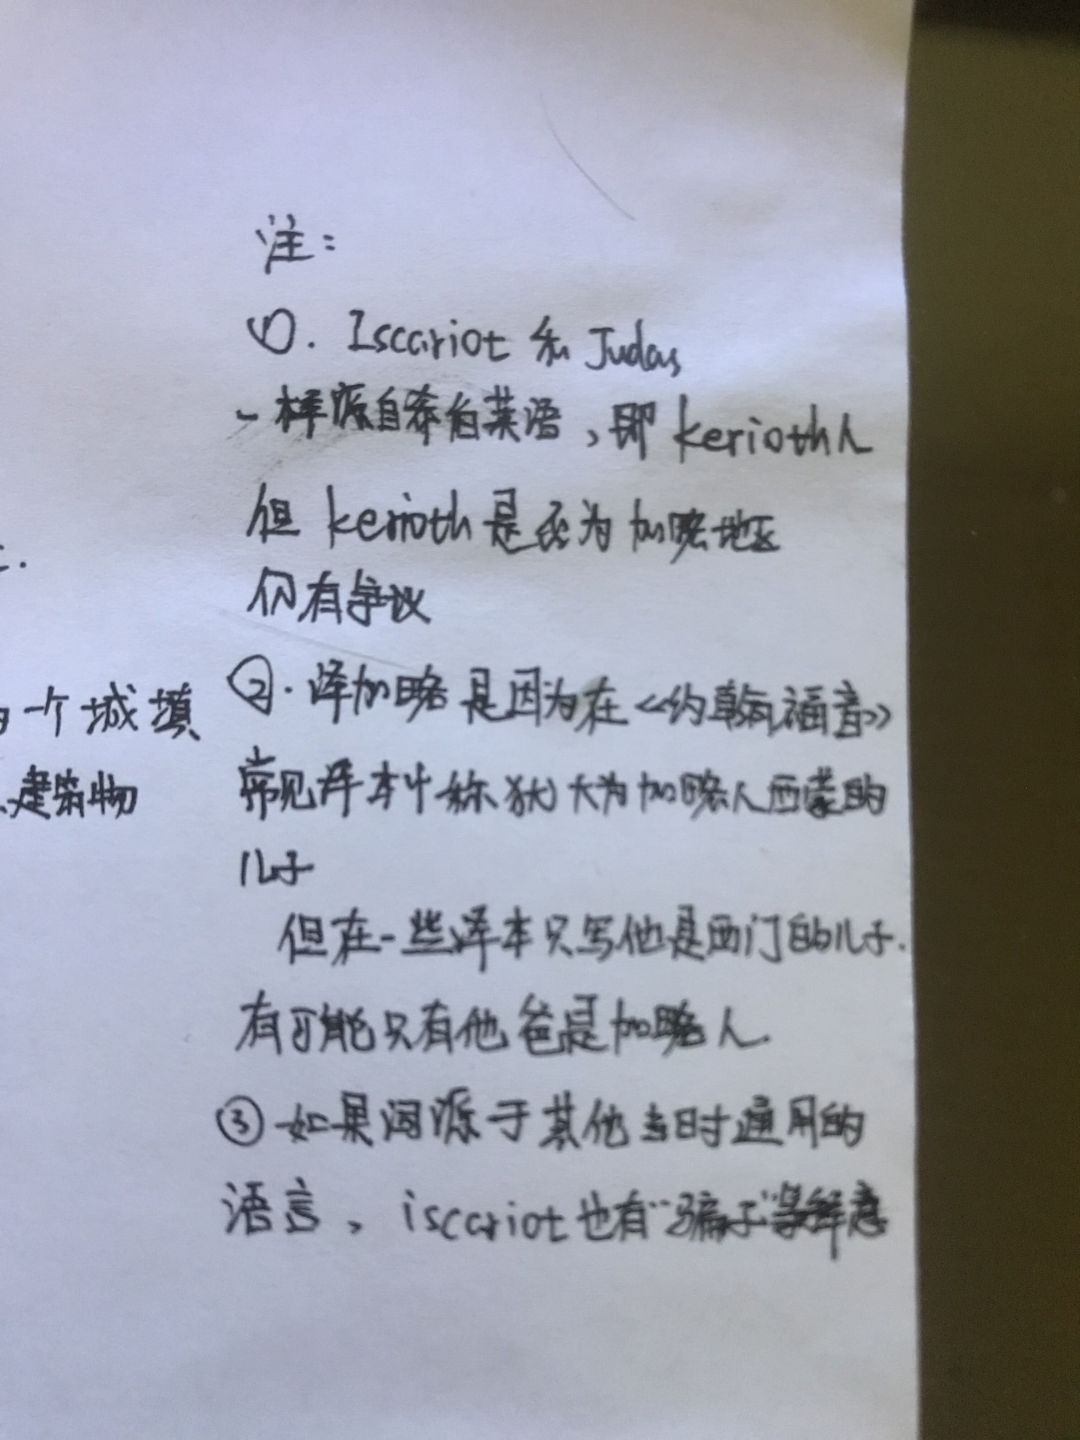 注：
①. Iscariot 和 Judas
一样源自希伯莱语，即 kerioth人
但 kerioth是否为加略地区
仍有争议
一个城填
建筑物
②. 译加略是因为在《约翰福音》
常见译本中称犹大为加略人西蒙的
儿子
但在一些译本只写他是西门的儿子.
有可能只有他爸是加略人.
③ 如果词源于其他当时通用的
语言，iscariot也有"骗子"等释意